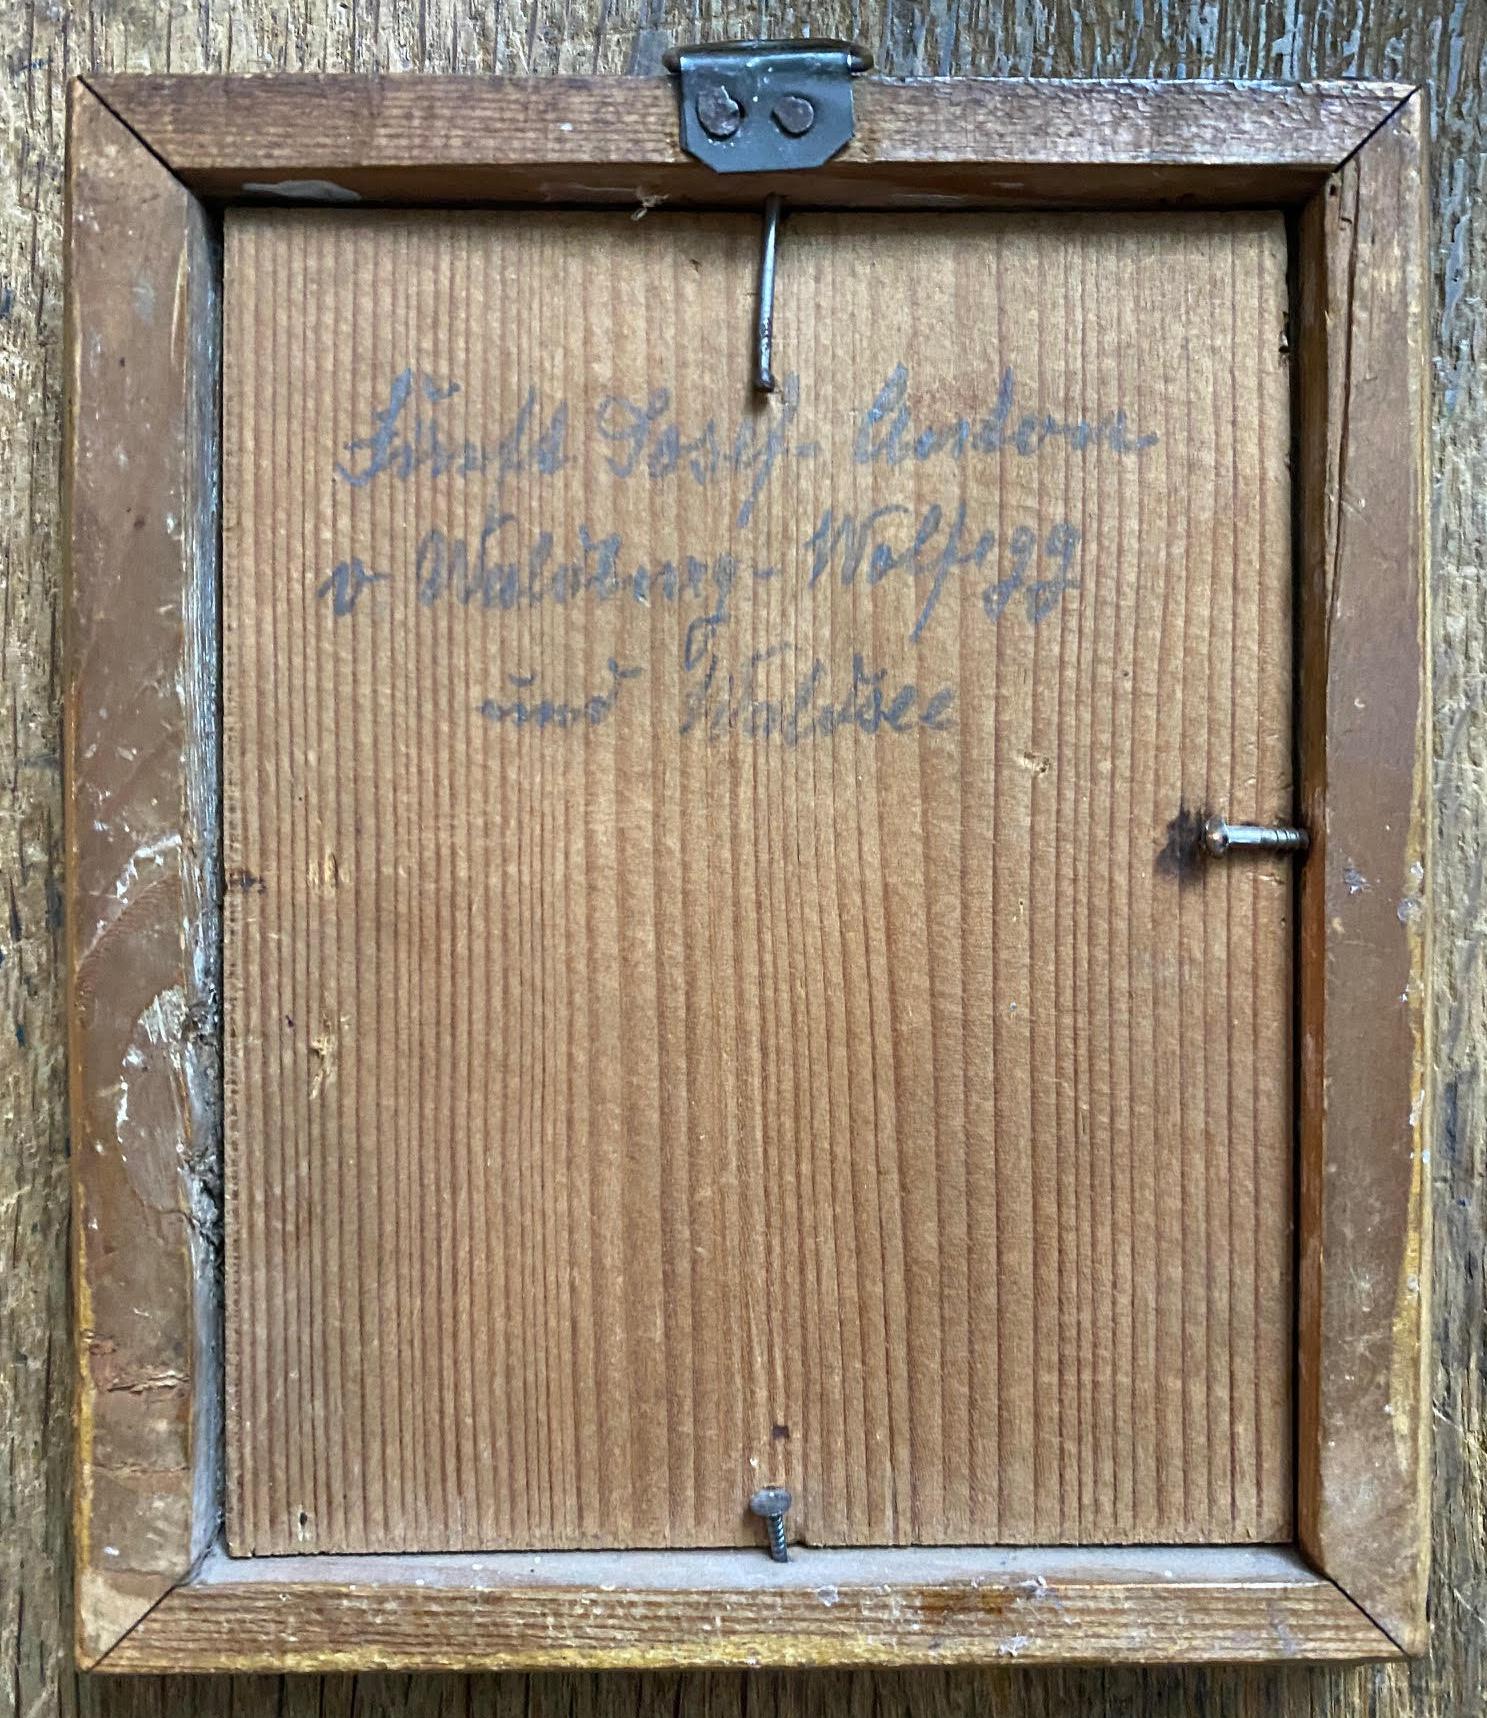 Fürst Josef-Anton
v Waldburg-Wolfegg
und Waldsee